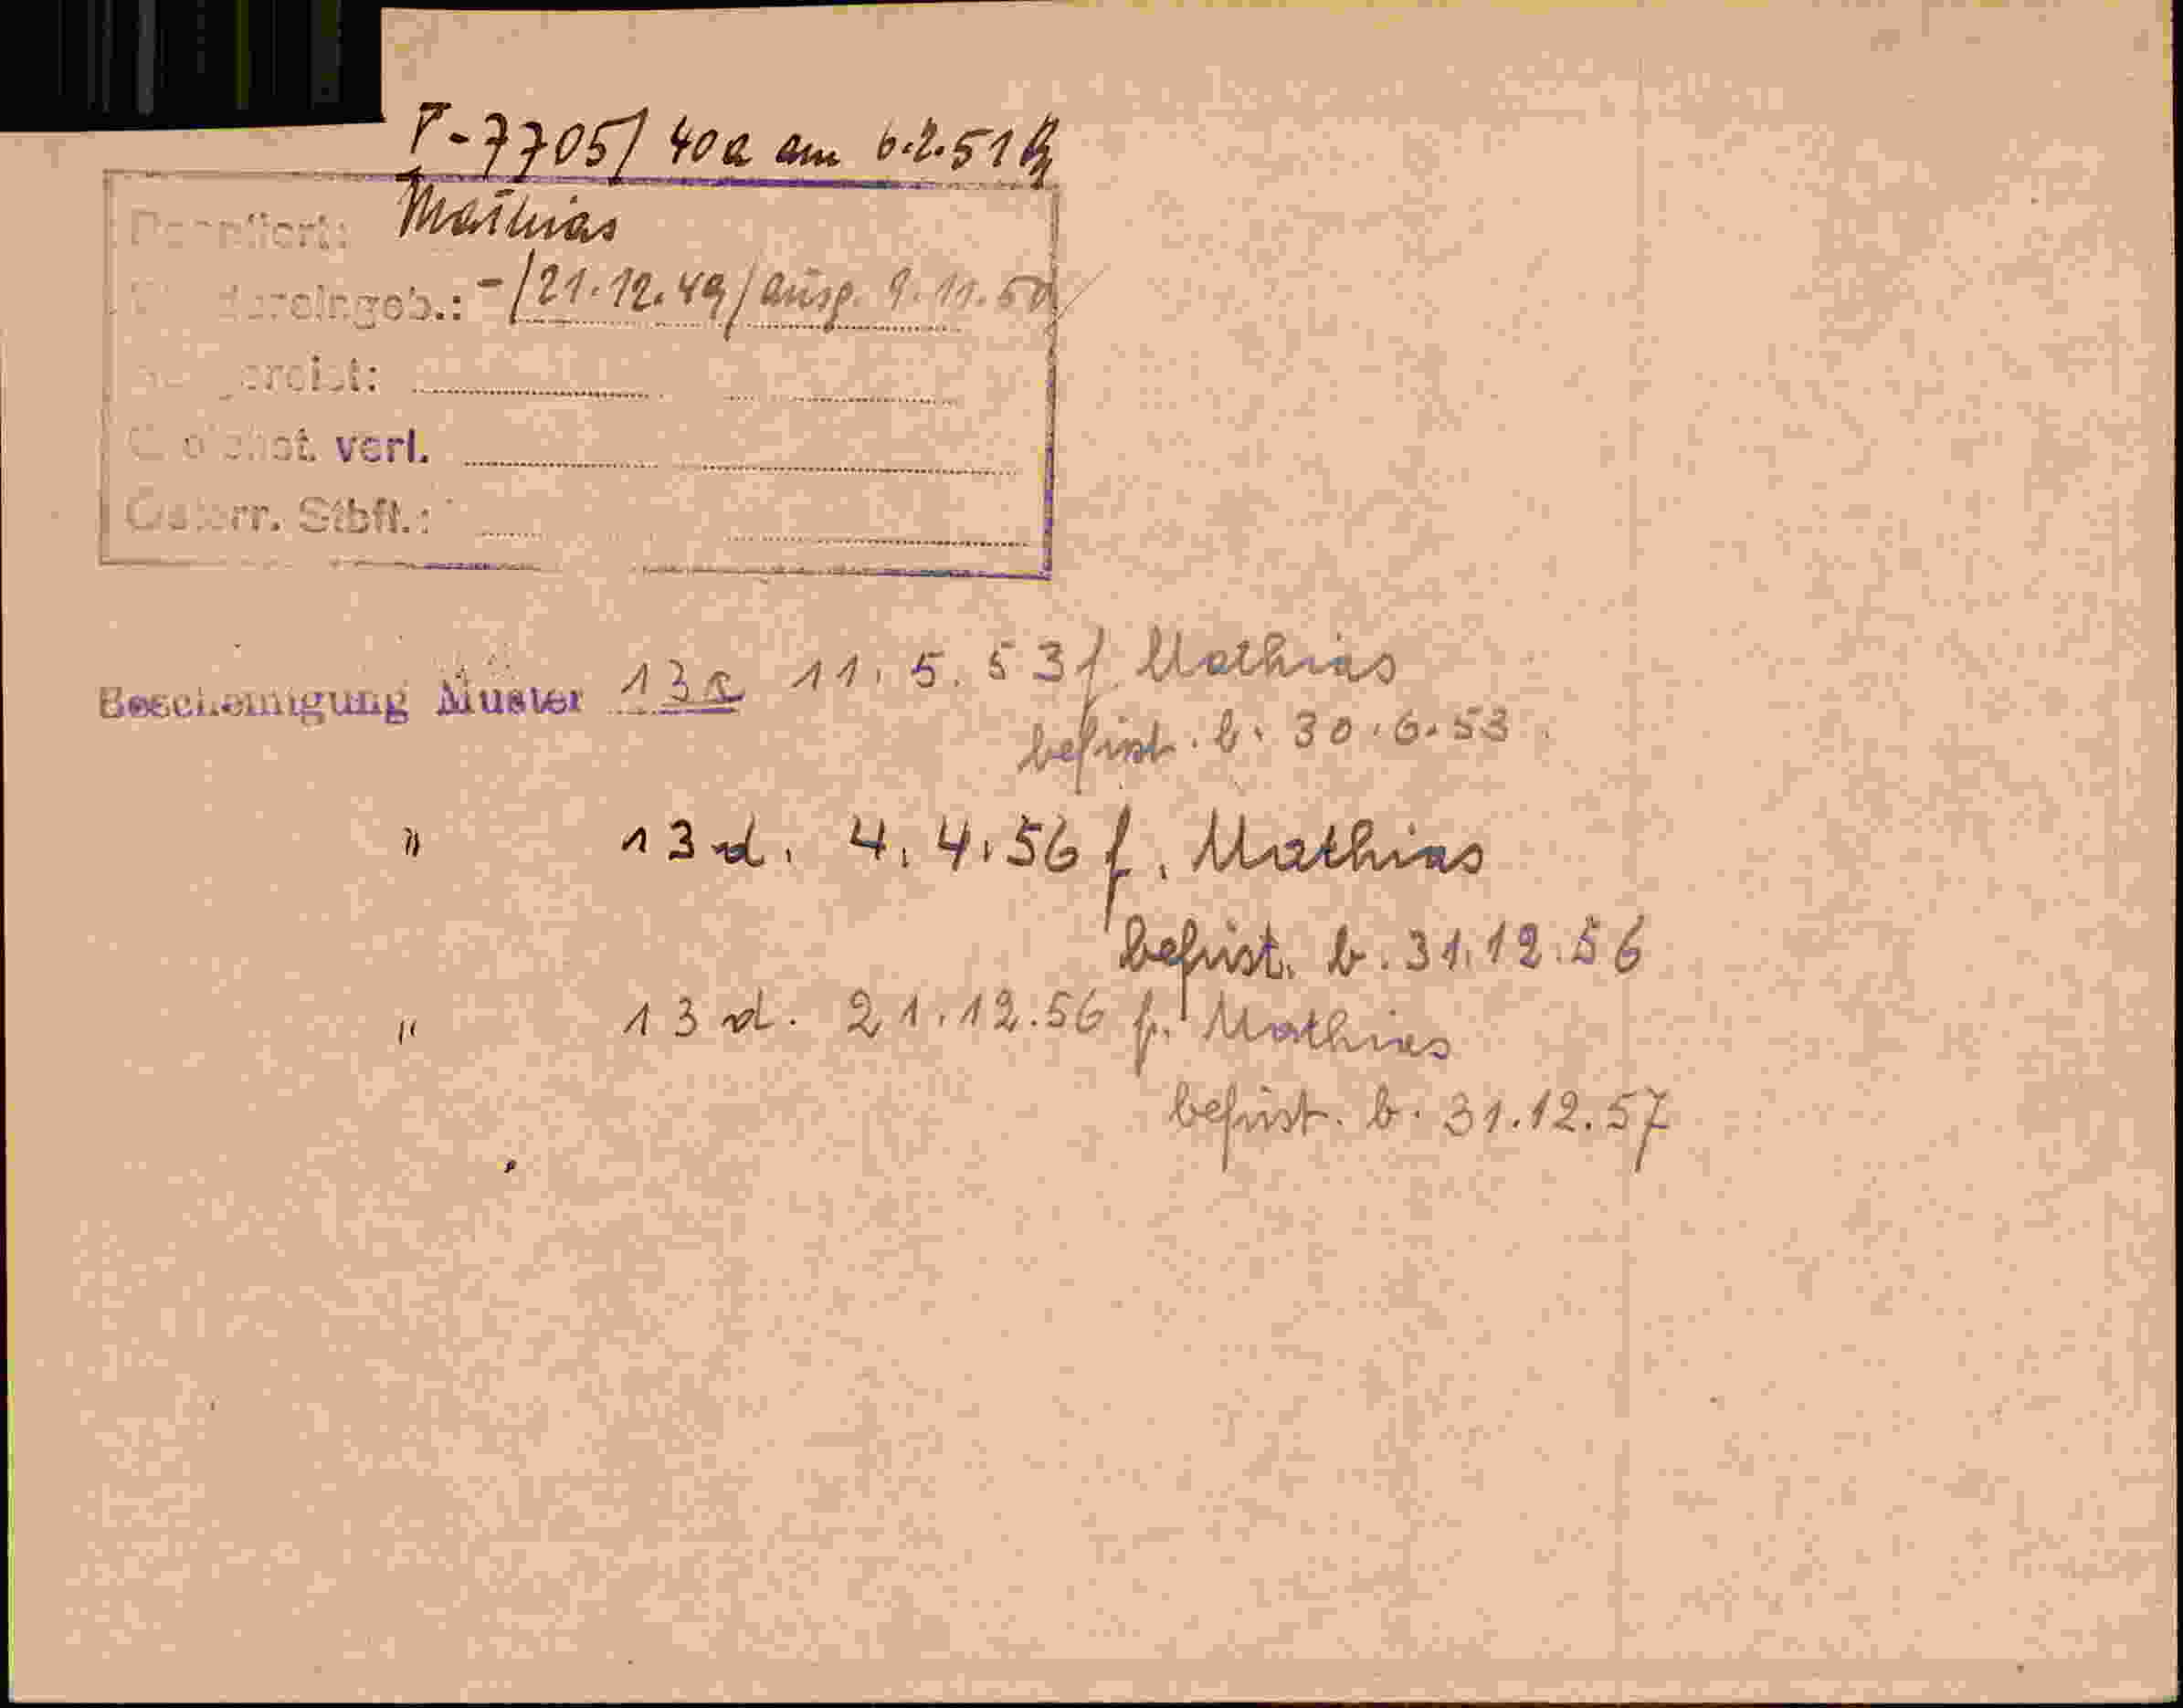 P-7705/ 40a am 6.2.51
Mathias
-/21.12.49/ausg. 9.11.50
verl.
Österr. Stbft.:
Bescheinigung Muster 13a 11.5.53 f. Mathias
befrist. b. 30.6.53.
" 13 d. 4.4.56 f. Mathias
befrist. b. 31.12.56
" 13 d. 21.12.56 f. Mathias
befrist. b. 31.12.57